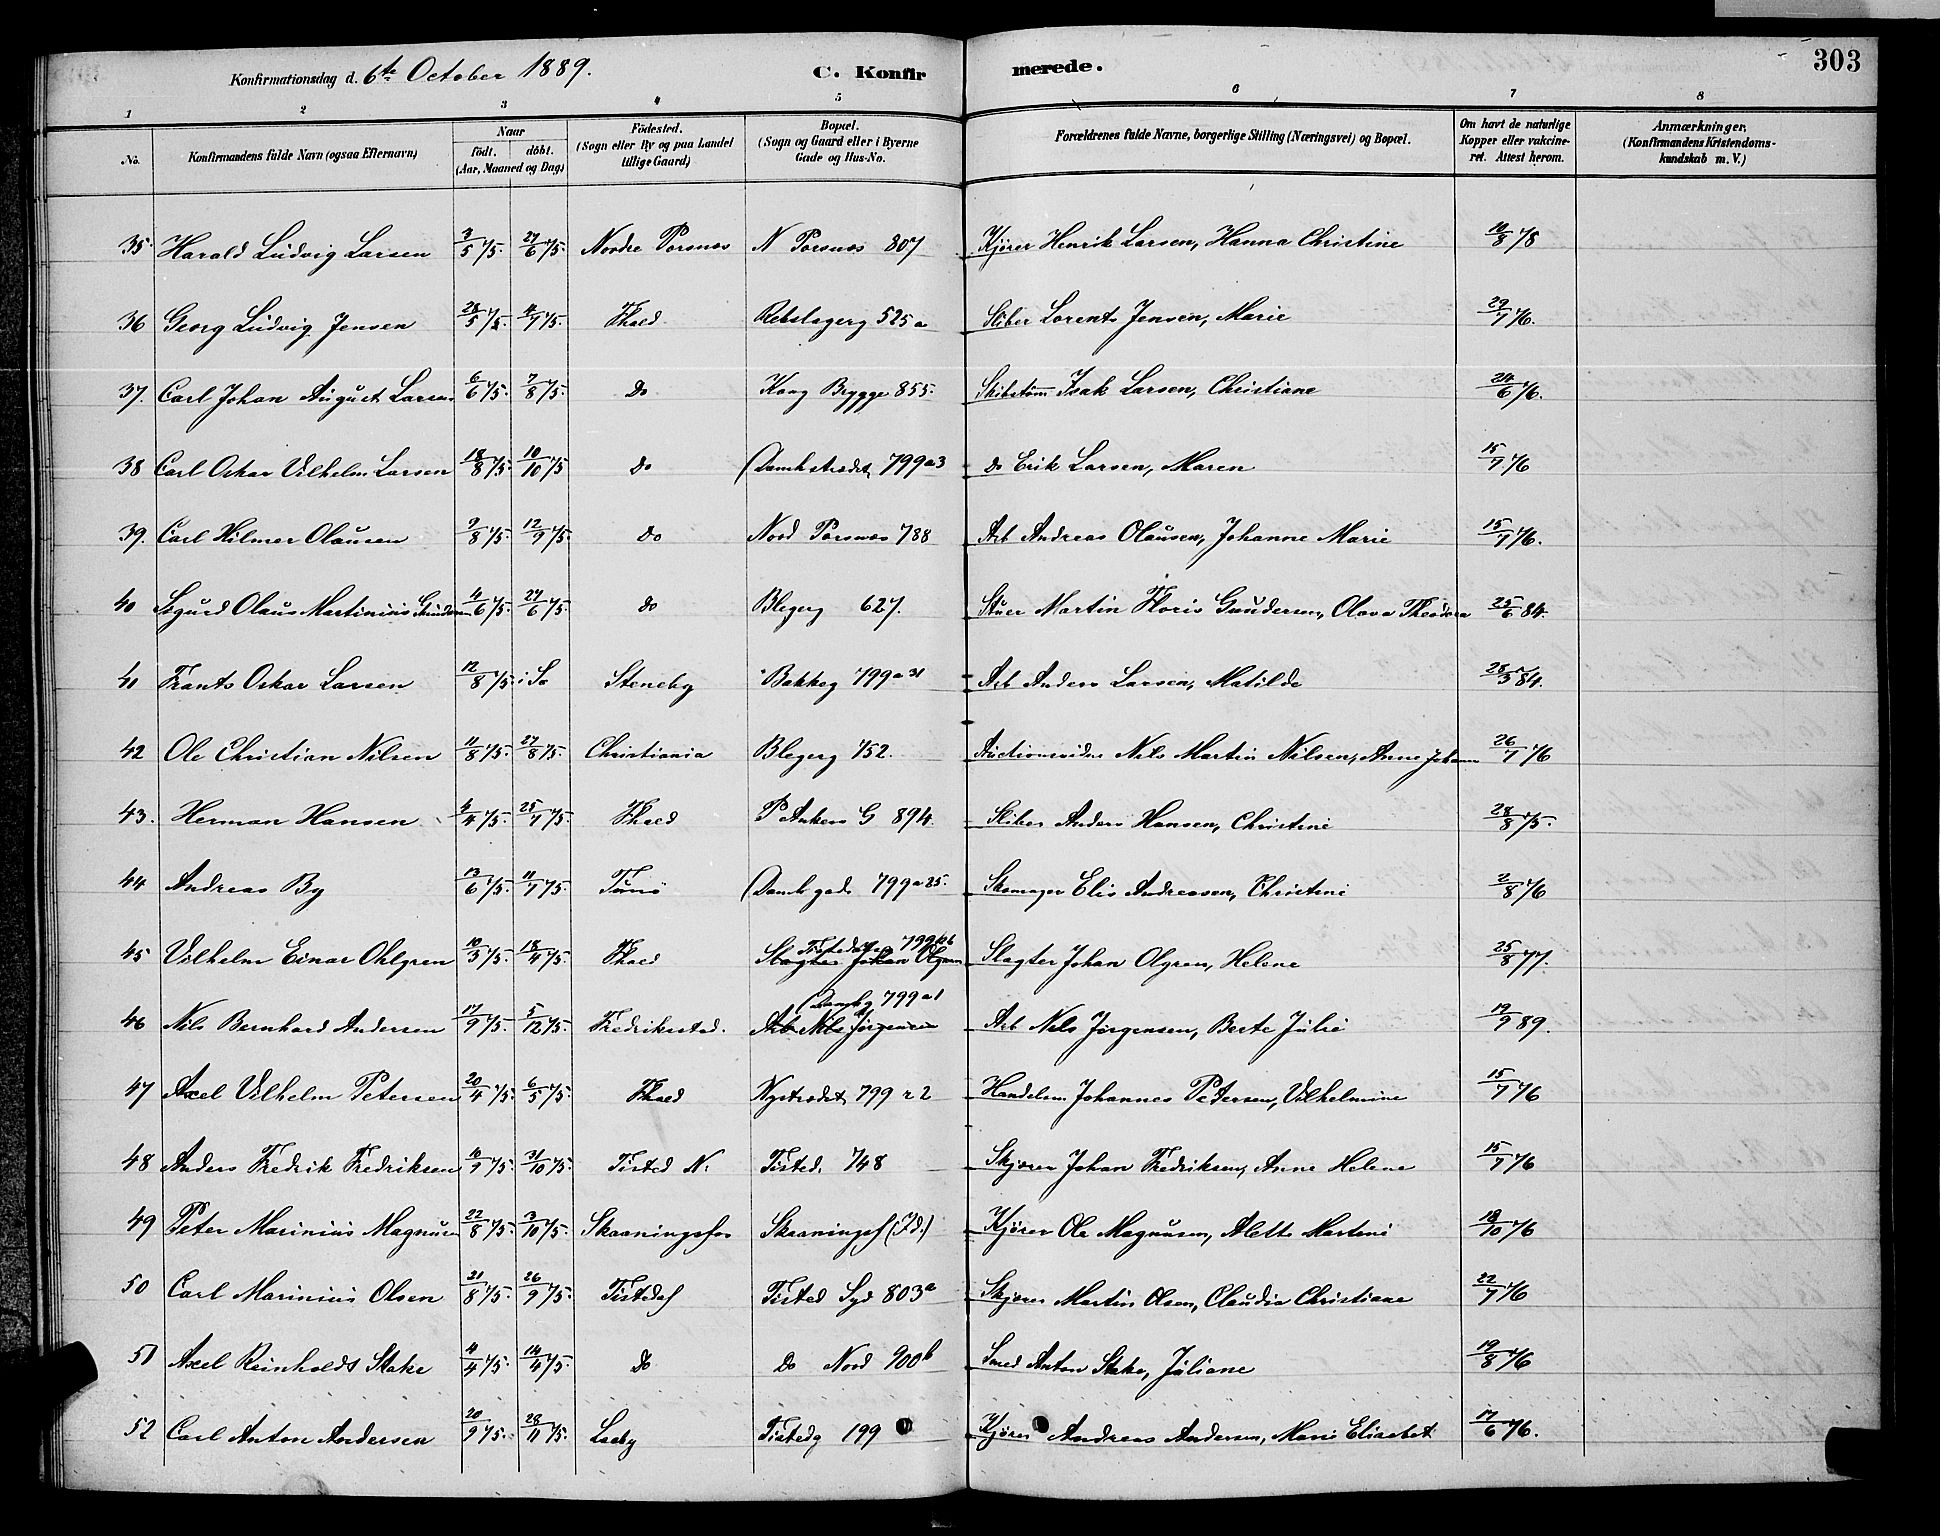 303
Konfirmationsdag d. 6te October 1889. C. Konfir merede.
1 2 3 4 5 6 7 8
No. Konfirmandens fulde Navn (ogsaa Efternavn) Naar født. døbt. (Aar, Maaned og Dag) Fødested. (Sogn eller By og paa Landet tillige Gaard) Bopæl. (Sogn og Gaard eller i Byerne Gade og Hus-No. Forældrenes fulde Navne, borgerlige Stilling (Næringsvei) og Bopæl. Om havt de naturlige Kopper eller vakcineret. Attest herom. Anmærkninger, (Konfirmandens Kristendomskundskab m. V.)
35. Harald Ludvig Larsen 3/5 75. 27/6 75. Nordre Porsnes N Porsnes 807 Kjører Henrik Larsen, Hanna Christine 10/8 78
36 Georg Ludvig Jensen 28/5 75. 75. Fhald Rebslagerg 525a Sliber Lorents Jensen, Marie 29/7 76.
37. Carl Johan August Larsen 6/6 75. 7/8 75. Do Brygge 855. Skibstøm Isak Larsen, Christiane 24/6 76.
38 Carl Oskar Vilhelm Larsen 18/8 75. 10/10 75 do Damhstrædet 799a3 do Erik Larsen, Maren 15/7 76
39. Carl Hilmer Olausen 9/8 75. 12/9 75. Do Nord Porsnes 788 Arb Andreas Olausen, Johanne Marie 15/7 76.
40 Sigurd Olaus Martinius Gundersen 4/6 75. 27/6 75. do Blegerg 627. Stuer Martin Floris Gundersen, Olava Theodora 25/6 84.
41 Frants Oskar Larsen 12/8 75. Steneby Bakkeg 799a31 Arb Anders Larsen, Matilde 28/5 84.
42 Ole Christian Nilsen 11/8 75. 27/8 75. Christiania Blegerg 752. Nils Martin Nilsen, Anne Johanne 26/7 76
43. Herman Hansen 4/4 75. 25/7 75. Fhald P Ankers G 894. Sliber Anders Hansen, Christine 28/8 75.
44 Andreas By 13/6 75. 11/7 75. Damhgade 799a25. Skomager Elis Andreasen, Christine 2/8 76
45 Vilhelm Einar Ohlgren 10/3 75. 18/4 75. Fhald Slagter Johan Olgren Slagter Johan Olgren, Helene 25/8 77.
46 Nils Bernhard Andersen 17/9 75. 5/12 75. Fredrikstad. Damhg 799a1 Arb Nils Jørgensen Arb Nils Jørgensen, Berte Julie 19/9 89.
47 Axel Vilhelm Petersen 20/4 75. 6/5 75. Fhald Nystrædet 799 r 2 Handelsm Johannes Petersen, Vilhelmine 15/7 76
48 Anders Fredrik Fredriksen 75. 31/10 75. Tisted N. Tisted. 748 Skjærer Johan Fredriksen, Anne Helene 15/7 76
49 Peter Marinius Magnusen 22/8 75. 3/10 75. Skaaningsfos Skaaningsf (Id.) Kjører Ole Magnusen, Alette Martine 18/10 76
50 Carl Marinius Olsen 21/8 75. 26/9 75. Tistedal Tisted Syd 803a Skjærer Martin Olsen, Claudia Christiane 22/7 76
51 Axel Reinholdt Stake 4/4 75. 14/4 75. Do Do Nord 900b Smed Anton Stake, Juliane 19/8 76
52 Carl Anton Andersen 20/9 75. 28/11 75. Tistedg 199 Kjører Andreas Andersen, Marie Elisabet 17/6 76.